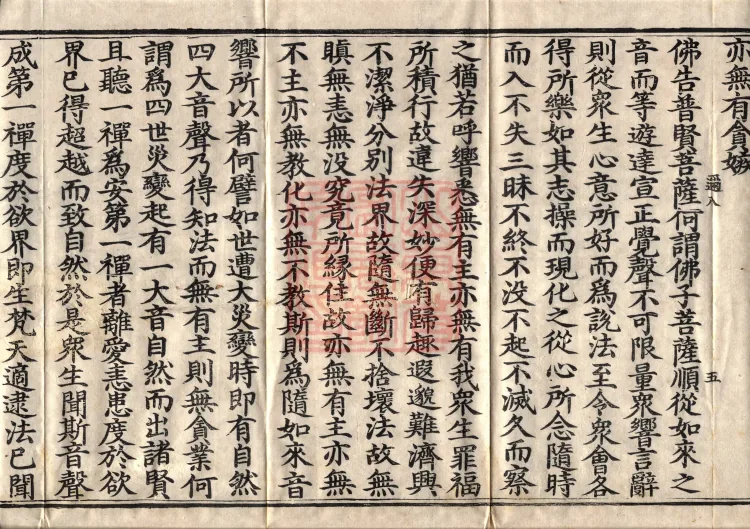 亦無有貪嫉
佛告普賢菩薩何謂佛子菩薩順從如來之
音而等遊達宣正覺聲不可限量眾響言辭
則從眾生心意所好而為說法至令眾會各
得所樂如其志操而現化之從心所念隨時
而入不失三昧不終不没不起不滅久而察
之猶若呼響悉無有主亦無有我眾生罪福
所積行故違失深妙便有歸趣遐邈難濟興
不潔淨分別法界故隨無斷不捨壞法故無
瞋無恚無没究竟所縁住故亦無有主亦無
不主亦無教化亦無不教斯則為隨如來音
響所以者何譬如世遭大災變時即有自然
四大音聲乃得知法而無有主則無貪業何
謂為四世災變起有一大音自然而出諸賢
且聽一禪為安第一禪者離愛恚患度於欲
界已得超越而致自然於是眾生聞斯音聲
成第一禪度於欲界即生梵天適逮法已聞
五